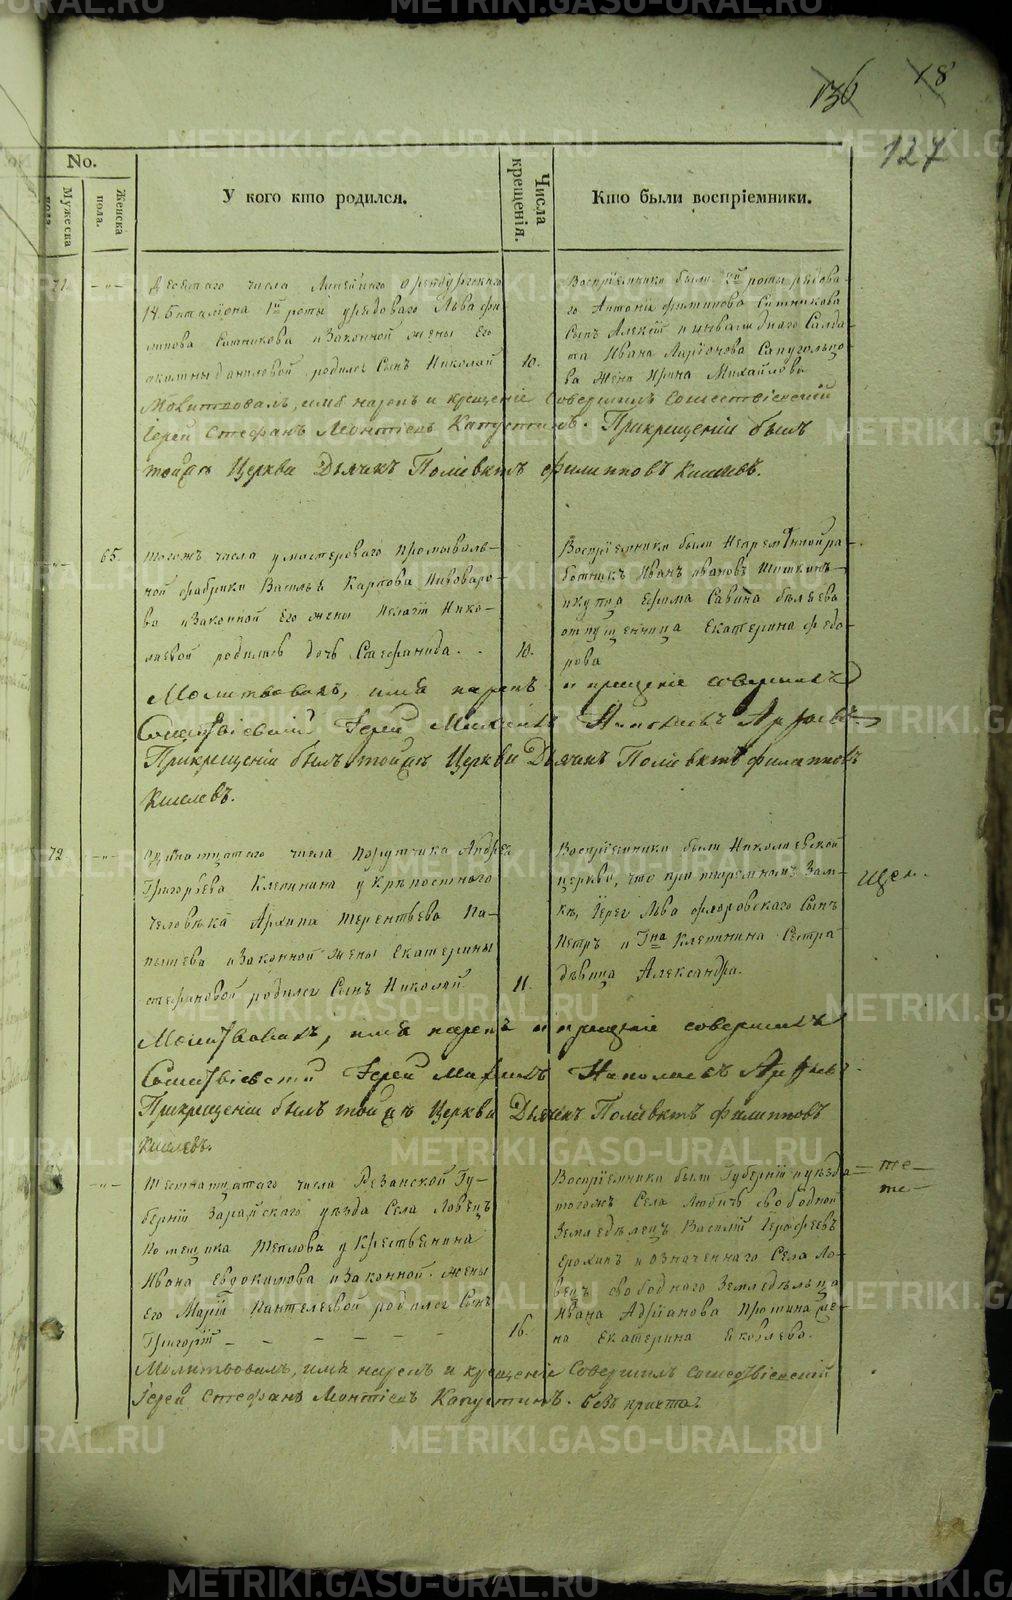 METRIKI.GASO-URAL.RU
136
18
127
No.
Мужеска пола.
Женска пола.
У кого кто родился.
Числа крещенія.
Кто были воспріемники.
71
Десятаго числа Линейнаго Оренбургскаго
14. Баталіона 1й роты у рядоваго Льва Фи-
липова Ситникова и Законной жены Его
Даниловой родился Сынъ Николай
10.
Воспріемники были роты рядова-
го Антонія Филипова Ситникова
Сынъ Алексій и инвалиднаго Солда-
та Ивана Ларіонова
ва Жена Ирина Михайлова
Молитвовалъ, имя нарекъ и крещеніе Совершилъ Сошествіевскій
Іерей Стефанъ Леонтіевъ Капустинъ. При крещеніи былъ
тойже Церкви Дьячекъ Поліевктъ Филипповъ Киселевъ.
65.
Тогожъ числа у мастероваго Промываль-
ной фабрики Василья Карпова Пивоваро-
ва и Законной Его жены Пелагіи Нико-
лаевой родилась дочь Стефанида.
10.
Воспріемники были Непремѣнной ра-
ботникъ Иванъ Ивановъ Шишкинъ
и купца Ефима Савина Бѣляева
отпущенница Екатерина Федо-
рова
Молитвовалъ, имя нарекъ и крещеніе совершилъ
Сошествіевскій Іерей Михаилъ Николаевъ
При крещеніи былъ тойже Церкви Дьячекъ Поліевктъ Филипповъ
Киселевъ.
72
Одинатцатаго числа Порутчика Андрея
Григорьева Клепинина у Крѣпостнаго
человѣка Архипа Терентьева Па-
и Законной жены Екатерины
Стефановой родился Сынъ Николай
11.
Воспріемники были Николаевской
церкви, что при тюремномъ Зам-
кѣ, Іерея Льва Флоровскаго Сынъ
Петръ и Гна Клепинина Сестра
дѣвица Александра.
Молитвовалъ, имя нарекъ и крещеніе совершилъ
Сошествіевскій Іерей Михаилъ Николаевъ
При крещеніи былъ тойже Церкви Дьячекъ Поліевктъ Филипповъ
Киселевъ.
Шестнатцатаго числа Резанской Гу-
берніи Зарайскаго уѣзда Села Ловецъ
Помещика Теплова у Крестьянина
Ивана Евдокимова и Законной жены
Его Маріи Пантелеевой родился Сынъ
Григорій
16.
Воспріемники были Губерніи и уѣзда
тогожъ Села Любичь свободной
Земледѣлецъ Василій Іерофеевъ
Ерохинъ и означеннаго Села Ло-
вецъ свободнаго Земледѣльца
Ивана Адріанова Прошина же-
на Екатерина Яковлева.
те
те
Молитвовалъ, имя нарекъ и крещеніе Совершилъ Сошествіевскій
Іерей Стефанъ Леонтіевъ Капустинъ. безъ причта